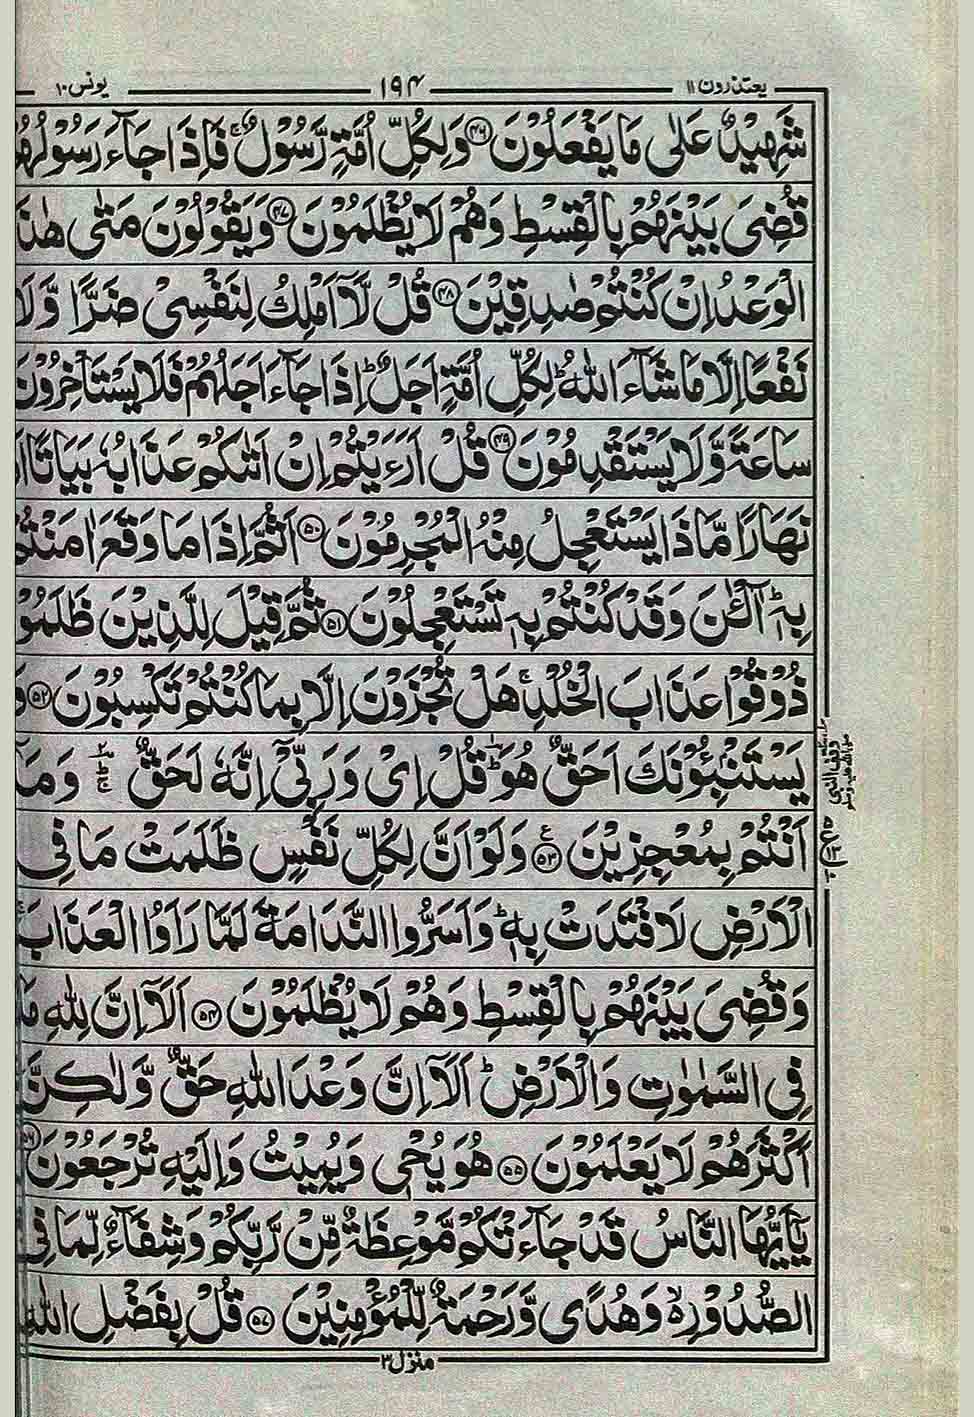 یعتذرون ۱۱ ۱۹۴ یونس ۱۰
شَهِیْدٌ عَلٰی مَا یَفْعَلُوْنَ ﴿۴۶﴾ وَلِكُلِّ اُمَّةٍ رَّسُوْلٌ ۚ فَاِذَا جَآءَ رَسُوْلُهُ
قُضِیَ بَیْنَهُمْ بِالْقِسْطِ وَهُمْ لَا یُظْلَمُوْنَ ﴿۴۷﴾ وَیَقُوْلُوْنَ مَتٰی هٰذَا
الْوَعْدُ اِنْ كُنْتُمْ صٰدِقِیْنَ ﴿۴۸﴾ قُلْ لَّاۤ اَمْلِكُ لِنَفْسِیْ ضَرًّا وَّلَا
نَفْعًا اِلَّا مَا شَآءَ اللّٰهُ ؕ لِكُلِّ اُمَّةٍ اَجَلٌ ؕ اِذَا جَآءَ اَجَلُهُمْ فَلَا یَسْتَاْخِرُوْنَ
سَاعَةً وَّلَا یَسْتَقْدِمُوْنَ ﴿۴۹﴾ قُلْ اَرَءَیْتُمْ اِنْ اَتٰىكُمْ عَذَابُهٗ بَیَاتًا
نَهَارًا مَّا ذَا یَسْتَعْجِلُ مِنْهُ الْمُجْرِمُوْنَ ﴿۵۰﴾ اَثُمَّ اِذَا مَا وَقَعَ اٰمَنْتُمْ
بِهٖ ؕ آٰلْـٰٔنَ وَقَدْ كُنْتُمْ بِهٖ تَسْتَعْجِلُوْنَ ﴿۵۱﴾ ثُمَّ قِیْلَ لِلَّذِیْنَ ظَلَمُوْ
ذُوْقُوْا عَذَابَ الْخُلْدِ ۚ هَلْ تُجْزَوْنَ اِلَّا بِمَا كُنْتُمْ تَكْسِبُوْنَ ﴿۵۲﴾ وَ
یَسْتَنْۢبِـُٔوْنَكَ اَحَقٌّ هُوَ ؕ قُلْ اِیْ وَرَبِّیْۤ اِنَّهٗ لَحَقٌّ ؔؕ وَمَاۤ
اَنْتُمْ بِمُعْجِزِیْنَ ﴿۵۳﴾ وَلَوْ اَنَّ لِكُلِّ نَفْسٍ ظَلَمَتْ مَا فِی
الْاَرْضِ لَافْتَدَتْ بِهٖ ؕ وَاَسَرُّوا النَّدَامَةَ لَمَّا رَاَوُا الْعَذَابَ ۚ
وَقُضِیَ بَیْنَهُمْ بِالْقِسْطِ وَهُمْ لَا یُظْلَمُوْنَ ﴿۵۴﴾ اَلَاۤ اِنَّ لِلّٰهِ مَا
فِی السَّمٰوٰتِ وَالْاَرْضِ ؕ اَلَاۤ اِنَّ وَعْدَ اللّٰهِ حَقٌّ وَّلٰكِنَّ
اَكْثَرَهُمْ لَا یَعْلَمُوْنَ ﴿۵۵﴾ هُوَ یُحْیٖ وَیُمِیْتُ وَاِلَیْهِ تُرْجَعُوْنَ ﴿۵۶﴾
یٰۤاَیُّهَا النَّاسُ قَدْ جَآءَتْكُمْ مَّوْعِظَةٌ مِّنْ رَّبِّكُمْ وَشِفَآءٌ لِّمَا فِی
الصُّدُوْرِ ۙ۬ وَهُدًی وَّرَحْمَةٌ لِّلْمُؤْمِنِیْنَ ﴿۵۷﴾ قُلْ بِفَضْلِ اللّٰهِ
منزل ۳